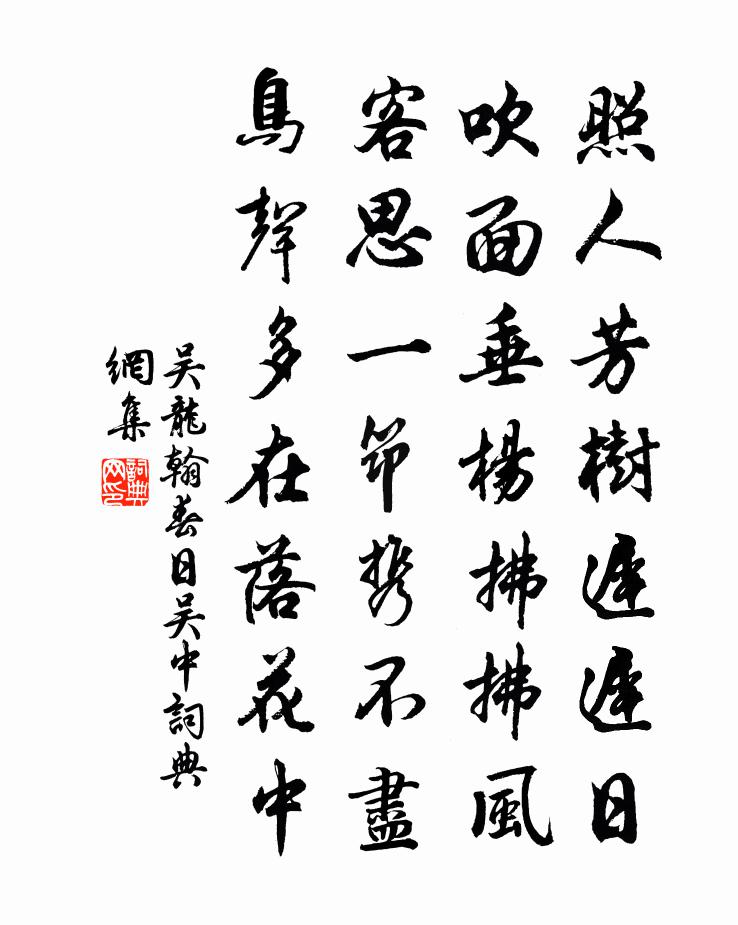 照人芳樹遲遲日
吹面垂楊拂拂風
客思一笻携不盡
鳥聲多在落花中
吳龍翰春日吳中詞典
網集
詞典
网印